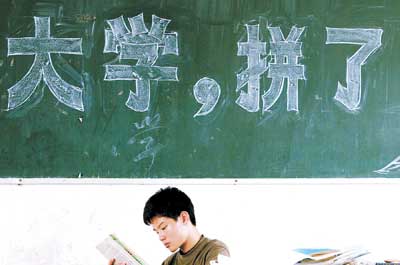 大学,拼了
学